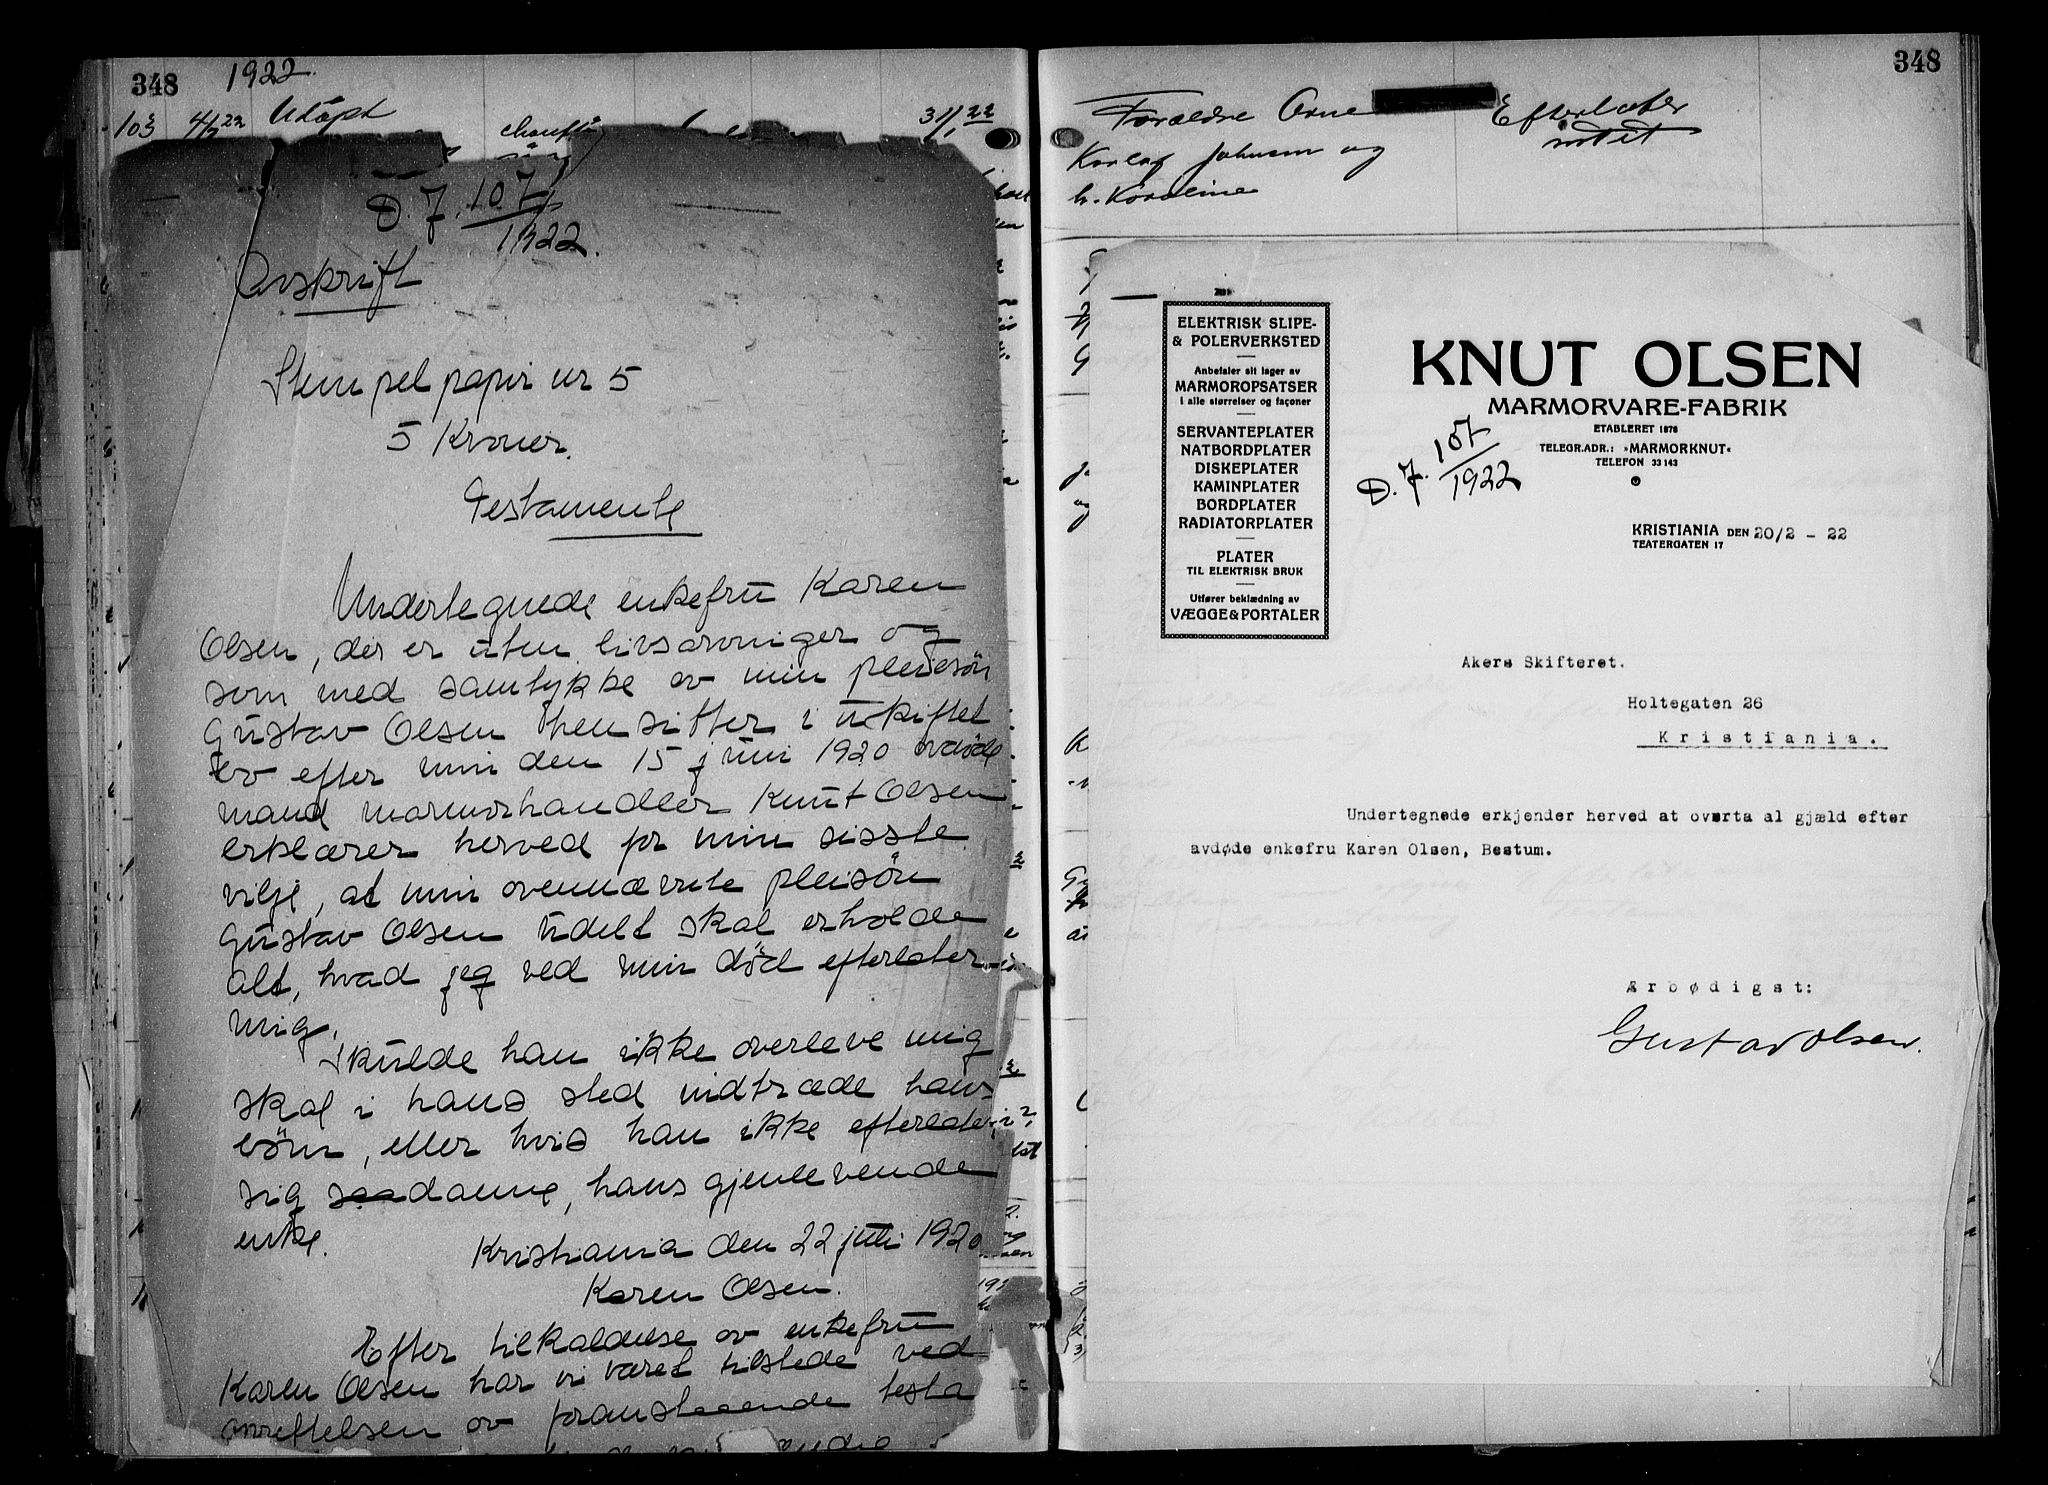 348 1922
103 4/2 22 Udøpt 31/1 22
D. 7. 107/1922.
Avskrift
Stempelpapir nr 5
5 Kroner.
Testamente
Undertegnede enkefru Karen
Olsen, der er uten livsarvinger og
som med samtykke av min pleiesøn
Gustav Olsen hensitter i uskiftet
bo efter min den 15 juni 1920 avdøde
mand marmorhandler Knut Olsen
erklærer herved for min sisste
vilje, at min ovennævnte pleisøn
Gustav Olsen udelt skal erholde
alt, hvad jeg ved min død efterlater
mig.
Skulde han ikke overleve mig
skal i hans sted indtræde hans
børn, eller hvis han ikke efterlater
sig saadanne, hans gjenlevende
enke.
Kristiania den 22 juli 1920
Karen Olsen.
Efter tilkaldelse av enkefru
Karen Olsen har vi været tilstede ved
oprettelsen av foranstaaende testa
348
Forældre Arne
Karlof Johnsen og
h. Karoline
Efterlater
intet
ELEKTRISK SLIPE-
& POLERVERKSTED
Anbefaler sit lager av
MARMOROPSATSER
i alle størrelser og façoner
SERVANTEPLATER
NATBORDPLATER
DISKEPLATER
KAMINPLATER
BORDPLATER
RADIATORPLATER
PLATER
TIL ELEKTRISK BRUK
Utfører beklædning av
VÆGGE & PORTALER
KNUT OLSEN
MARMORVARE-FABRIK
ETABLERET 1878
TELEGR.ADR.: »MARMORKNUT«
TELEFON 33143
D. 7. 107/1922
KRISTIANIA DEN 20/2 - 22
TEATERGATEN 17
Akers Skifteret.
Holtegaten 26
Kristiania.
Undertegnede erkjender herved at overta al gjæld efter
avdøde enkefru Karen Olsen, Bestum.
Ærbødigst:
Gustav Olsen.